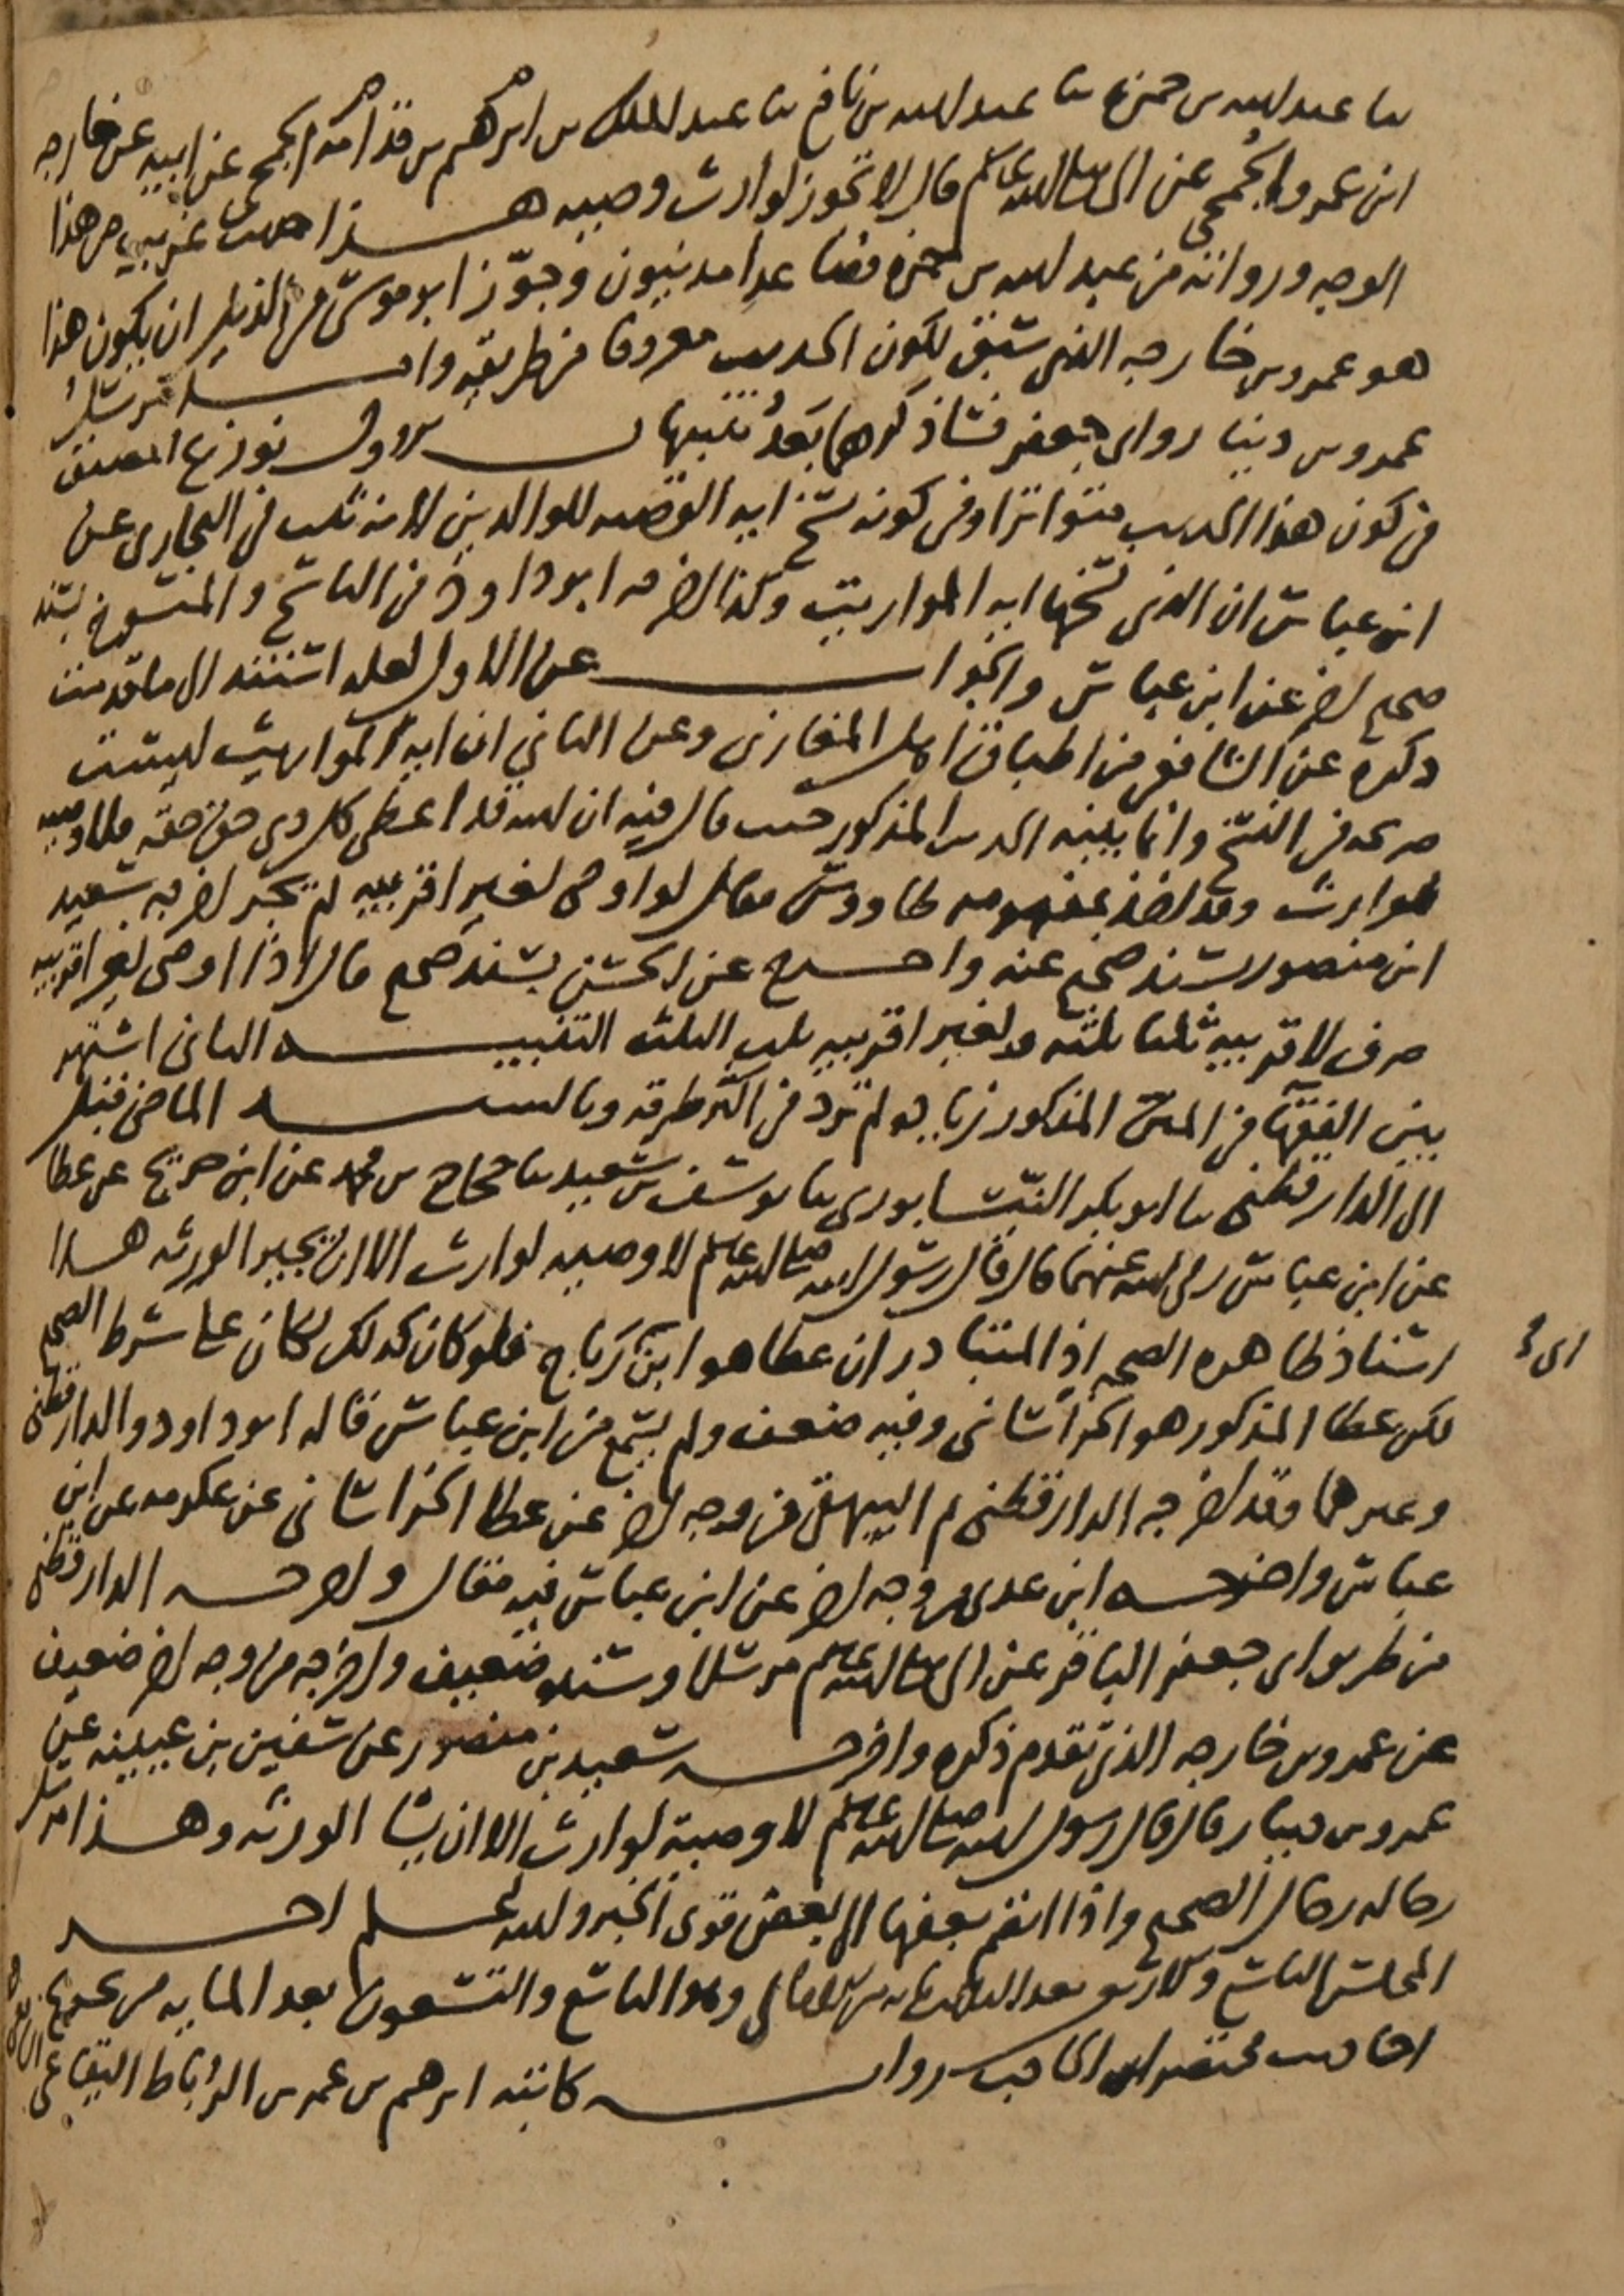 ثنا عبد الله بن حمزة ثنا عبد الله بن نافع ثنا عبد الملك بن ابرهيم بن قدامة الجمحي عن ابيه عن خارجه
ابن عمرو الجمحي عن النبي صلى الله عليه وسلم قال لا تجوز لوارث وصيه هذا حديث غريب من هذا
الوجه ورواته من عبد الله بن حمزه فصاعدا مدنيون وجوز ابو موسى في الذيل ان يكون هذا
هو عمرو بن خارجه الذي سبق لكون الحديث معروفا من طريقه واما مرسل
عمرو بن دينار وابي جعفر فساذكرهما بعد تنبيهان الاول نوزع المصنف
في كون هذا الحديث متواترا وفي كونه نسخ ايه الوصيه للوالدين لانه ثبت في البخاري عن
ابن عباس ان الذي نسخها ايه المواريث وكذا اخرجه ابو داود في الناسخ والمنسوخ بسند
صحيح اخر عن ابن عباس والجواب عن الاول لعله استند الى ما قدمت
ذكره عن الشافعي من اطباق اهل المغازي وعن الثاني ان ايه المواريث ليست
صريحه في النسخ وانما بينه الحديث المذكور حيث قال فيه ان الله قد اعطى كل ذي حق حقه فلا وصيه
لوارث وقد اخذ بمفهومه طاووس فقال لو اوصى لغير اقربيه لم يجز اخرجه سعيد
ابن منصور بسند صحيح عنه واخرج عن الحسن بسند صحيح قال اذا اوصى لغير اقربيه
صرف لاقربيه ثلثا ثلثه ولغير اقربيه ثلث الثلث التنبيه الثاني اشتهر
بين الفقها في المتن المذكور زياده لم ترد في اكثر طرقه وبالسند الماضي قبل
الى الدارقطني ثنا ابو بكر النيسابوري ثنا يوسف بن سعيد ثنا حجاج بن محمد عن ابن جريج عن عطا
عن ابن عباس رضي الله عنهما قال قال رسول الله صلى الله عليه وسلم لا وصيه لوارث الا ان يجيز الورثه هذا
اسناد ظاهره الصحه اذ المتبادر ان عطا هو ابن ابي رباح فلو كان كذلك لكان على شرط الصحيح
لكن عطا المذكور هو الخراساني وفيه ضعف ولم يسمع من ابن عباس قاله ابو داود والدارقطني
وغيرهما وقد اخرجه الدارقطني ثم البيهقي من وجه اخر عن عطا الخراساني عن عكرمه عن ابن
عباس واخرجه ابن عدي من وجه اخر عن ابن عباس فيه مقال واخرجه الدارقطني
من طريق ابي جعفر الباقر عن النبي صلى الله عليه وسلم مرسلا وسنده ضعيف واخرجه من وجه اخر ضعيف
عن عمرو بن خارجه الذي تقدم ذكره واخرجه سعيد بن منصور عن سفين بن عيينه عن
عمرو بن دينار قال قال رسول الله صلى الله عليه وسلم لا وصية لوارث الا ان يشا الورثه وهذا مرسل
رجاله رجال الصحيح واذا انضم بعضها الى بعض قوى الخبر والله اعلم اخر
المجلس التاسع والاربعون بعد وهو التاسع والتسعون بعد المايه من تخريج
احاديث مختصر ابن الحاجب روايه كاتبه ابرهيم بن عمر بن الرباط البقاعي